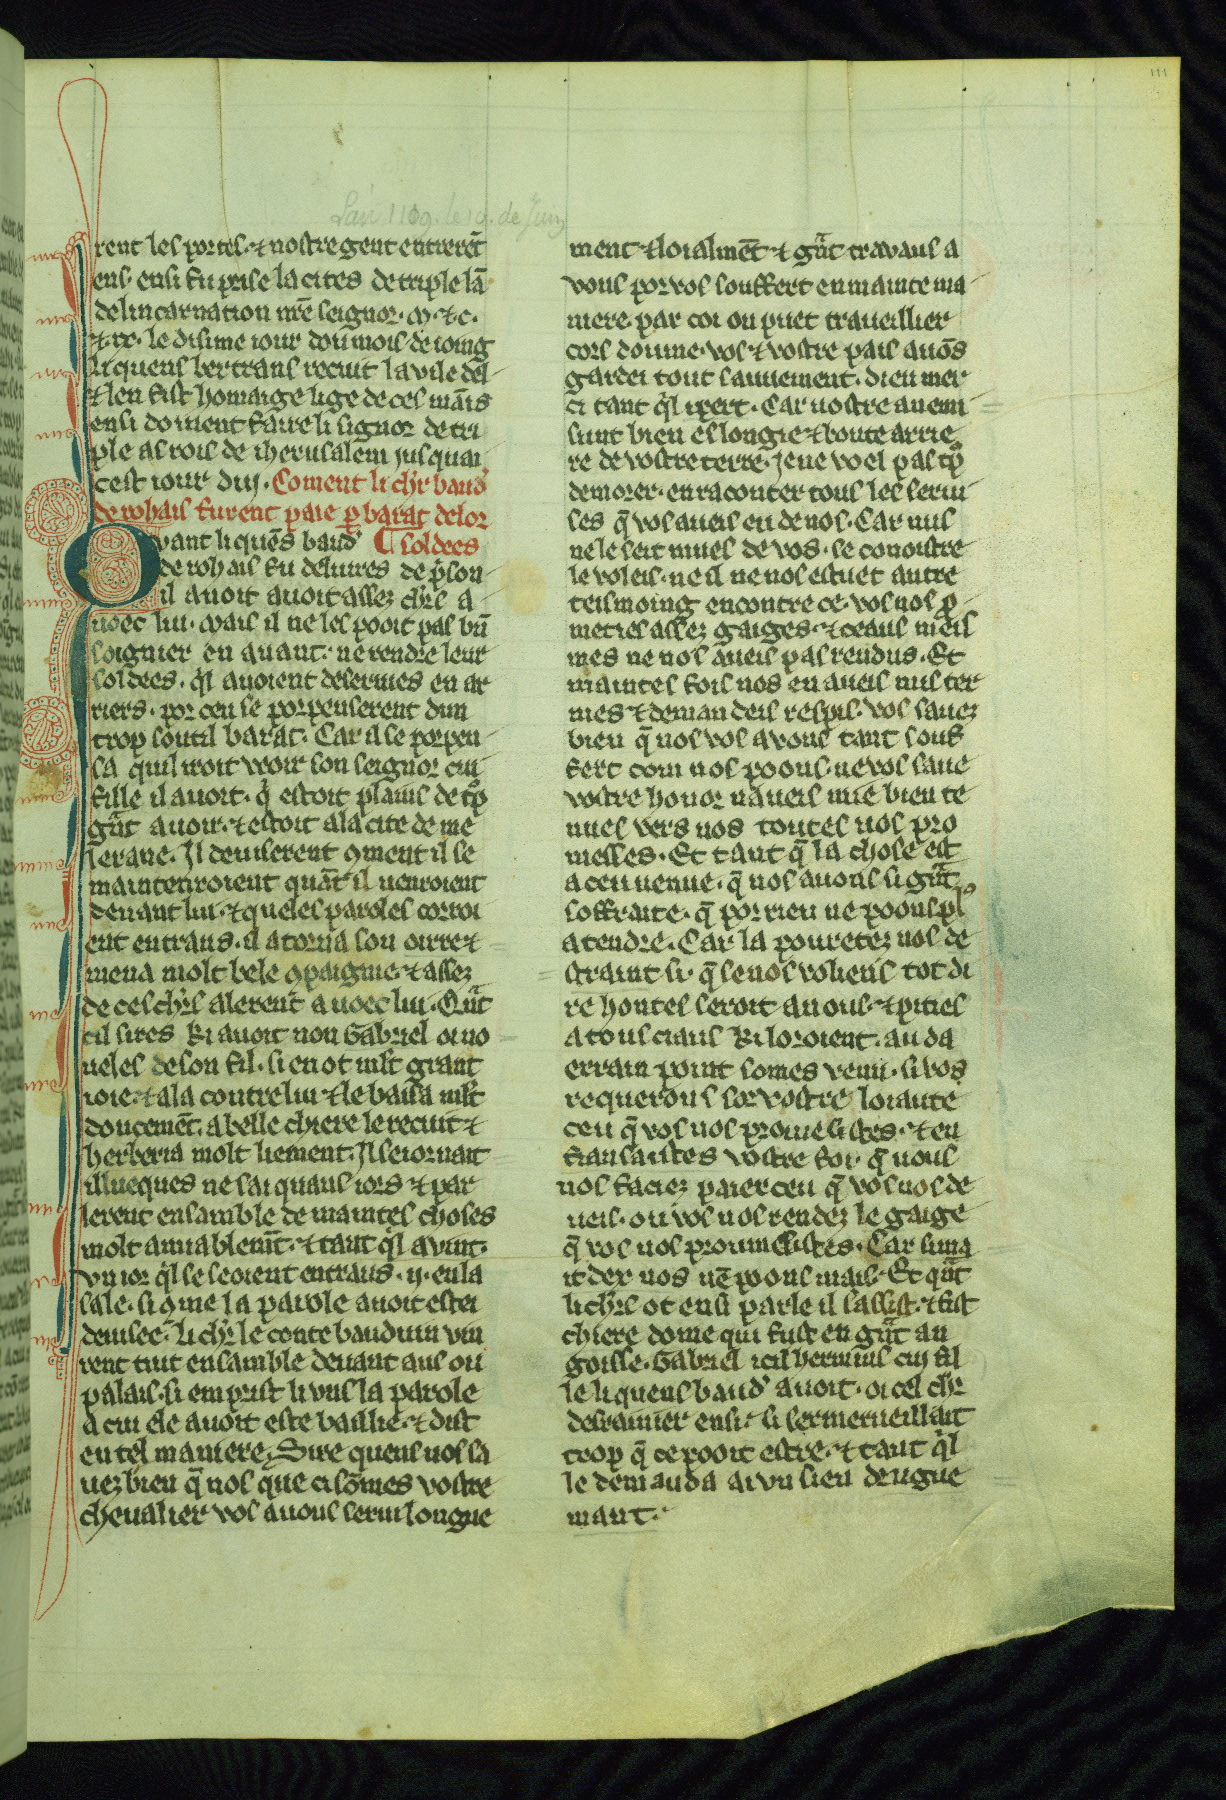 III
Lan 1109. le 10. de Juin
rent les portes. ⁊ nostre gent entrerēt
ens. ensi fu prise la cites de triple lā
de lincarnation nr̄e seignor. m. ⁊ c.
⁊ ix. le disime iour dou mois de ioing
li quens bertrans reciut la vile del
⁊ len fist homaige lige de ces mains
ensi doivent faire li signor de tri
ple as rois de iherusalem jusquai
cest iour dui. Coment li chr̄ baud'
de rohais furent paie ꝑ barat de lor
Qvant li quēs baud' ¶ soldees
de rohais fu deliures de pͥson
il auoit auoit assez chr̄s a
uoec lui. mais il ne les pooit pas bn̄
soignier en quant. ne rendre leur
soldees. qͥl auoient deseruies en ar
riers. por ceu se porpenserent dun
trop soutil barat. Car il se porpen
sa quil iroit veoir son seignor cui
fille il auoit. qͥ estoit plains de tͥp
gͣnt auoir. ⁊ estoit a la cite de me
lerane. Il deuiserent ꝯment il se
maintenroient quāt il uenroient
deuant lui. ⁊ queles paroles corroi
ent entraus. il atorna son oirre ⁊
mena molt bele ꝯpaignie. ⁊ assez
de ces chr̄s alerent auoec lui. Qͣnt
cil sires ki auoit non Gabriel oi no
ueles de son fil. si en ot mlt grant
ioie. ⁊ ala contre lui ⁊ le baisa mlt
doucemēt. a belle chiere le reciut ⁊
herberia molt liement. Il seiornait
illueques ne sai quans iors ⁊ par
lerent ensamble de maintes choses
molt amiablemt̄. ⁊ tant qͥl auint.
vn ior qͥl se seoient entraus. ij. en la
sale. si ꝯme la parole auoit estei
deuisee. li chr̄ le conte bauduin vin
rent tuit ensamble deuant aus ou
palais. si emprist li vns la parole
a cui ele auoit este baillie. ⁊ dist
en tel maniere. Sire quens uos sa
uez bien q̄ nos que ci sōmes vostre
cheualier vos auons serui longue
ment ⁊ loialmēt ⁊ gͣnt travaus a
vons por vos souffert en mainte ma
niere. par coi on puet traueillier
cors doume. vos ⁊ vostre pais auōs
gardei tout sauuement. dieu mer
ci tant qͥl ipert. Car uostre anemi
sunt bien eslongie ⁊ boute arrie
re de vostre terre. Je ne voel pas tͥp
demorer. en raconter tous les serui
ses q̄ vos aueis eu de nos. Car nus
ne le seit mues de vos. se conoistre
le voleis. ne il ne nos estuet autre
tesmoing encontre ce. vos nos ꝓ
meties assez gaiges. ⁊ ceaus meis
mes ne nos aueis pas rendus. Et
maintes fois nos en aueis mis ter
mes ⁊ demandeis respis. vos sauez
bien q̄ nos vos avons tant souf
fert com nos poons. ne vos saue
vostre honor naueis mie bien te
nues vers nos toutes uos pro
messes. Et tant q̄ la chose est
a ceu uenue. q̄ nos auons si gͣnt
soffraite. q̄ por rien ne poons pl᷒
atendre. Car la pouretez nos de
straint si. q̄ se nos voliens tot di
re hontes seroit a uous. ⁊ pities
a tous ciaus ki loroient. au da
errain point somes venu. si vos
requerons sor vostre loiaute
ceu q̄ vos nos promesistes. ⁊ en
fiansaistes vostre foi. q̄ nous
nos faciez paier ceu q̄ vos nos de
ueis. ou vos nos rendez le gaige
q̄ vos nos promesistes. Car

it der nos nē poons mais. Et qͣnt
li chr̄s ot ensi parle il sassist. ⁊ fist
chiere dome qui fust en gͣnt an
goisse. Gabriel icil hermins cui fil
le li quens baud' auoit. oi cel chr̄
desrainier ensi. si sermerueillait
trop q̄ ce pooit estre. ⁊ tant qͥl
le demauda a vn sien drugue
mant.